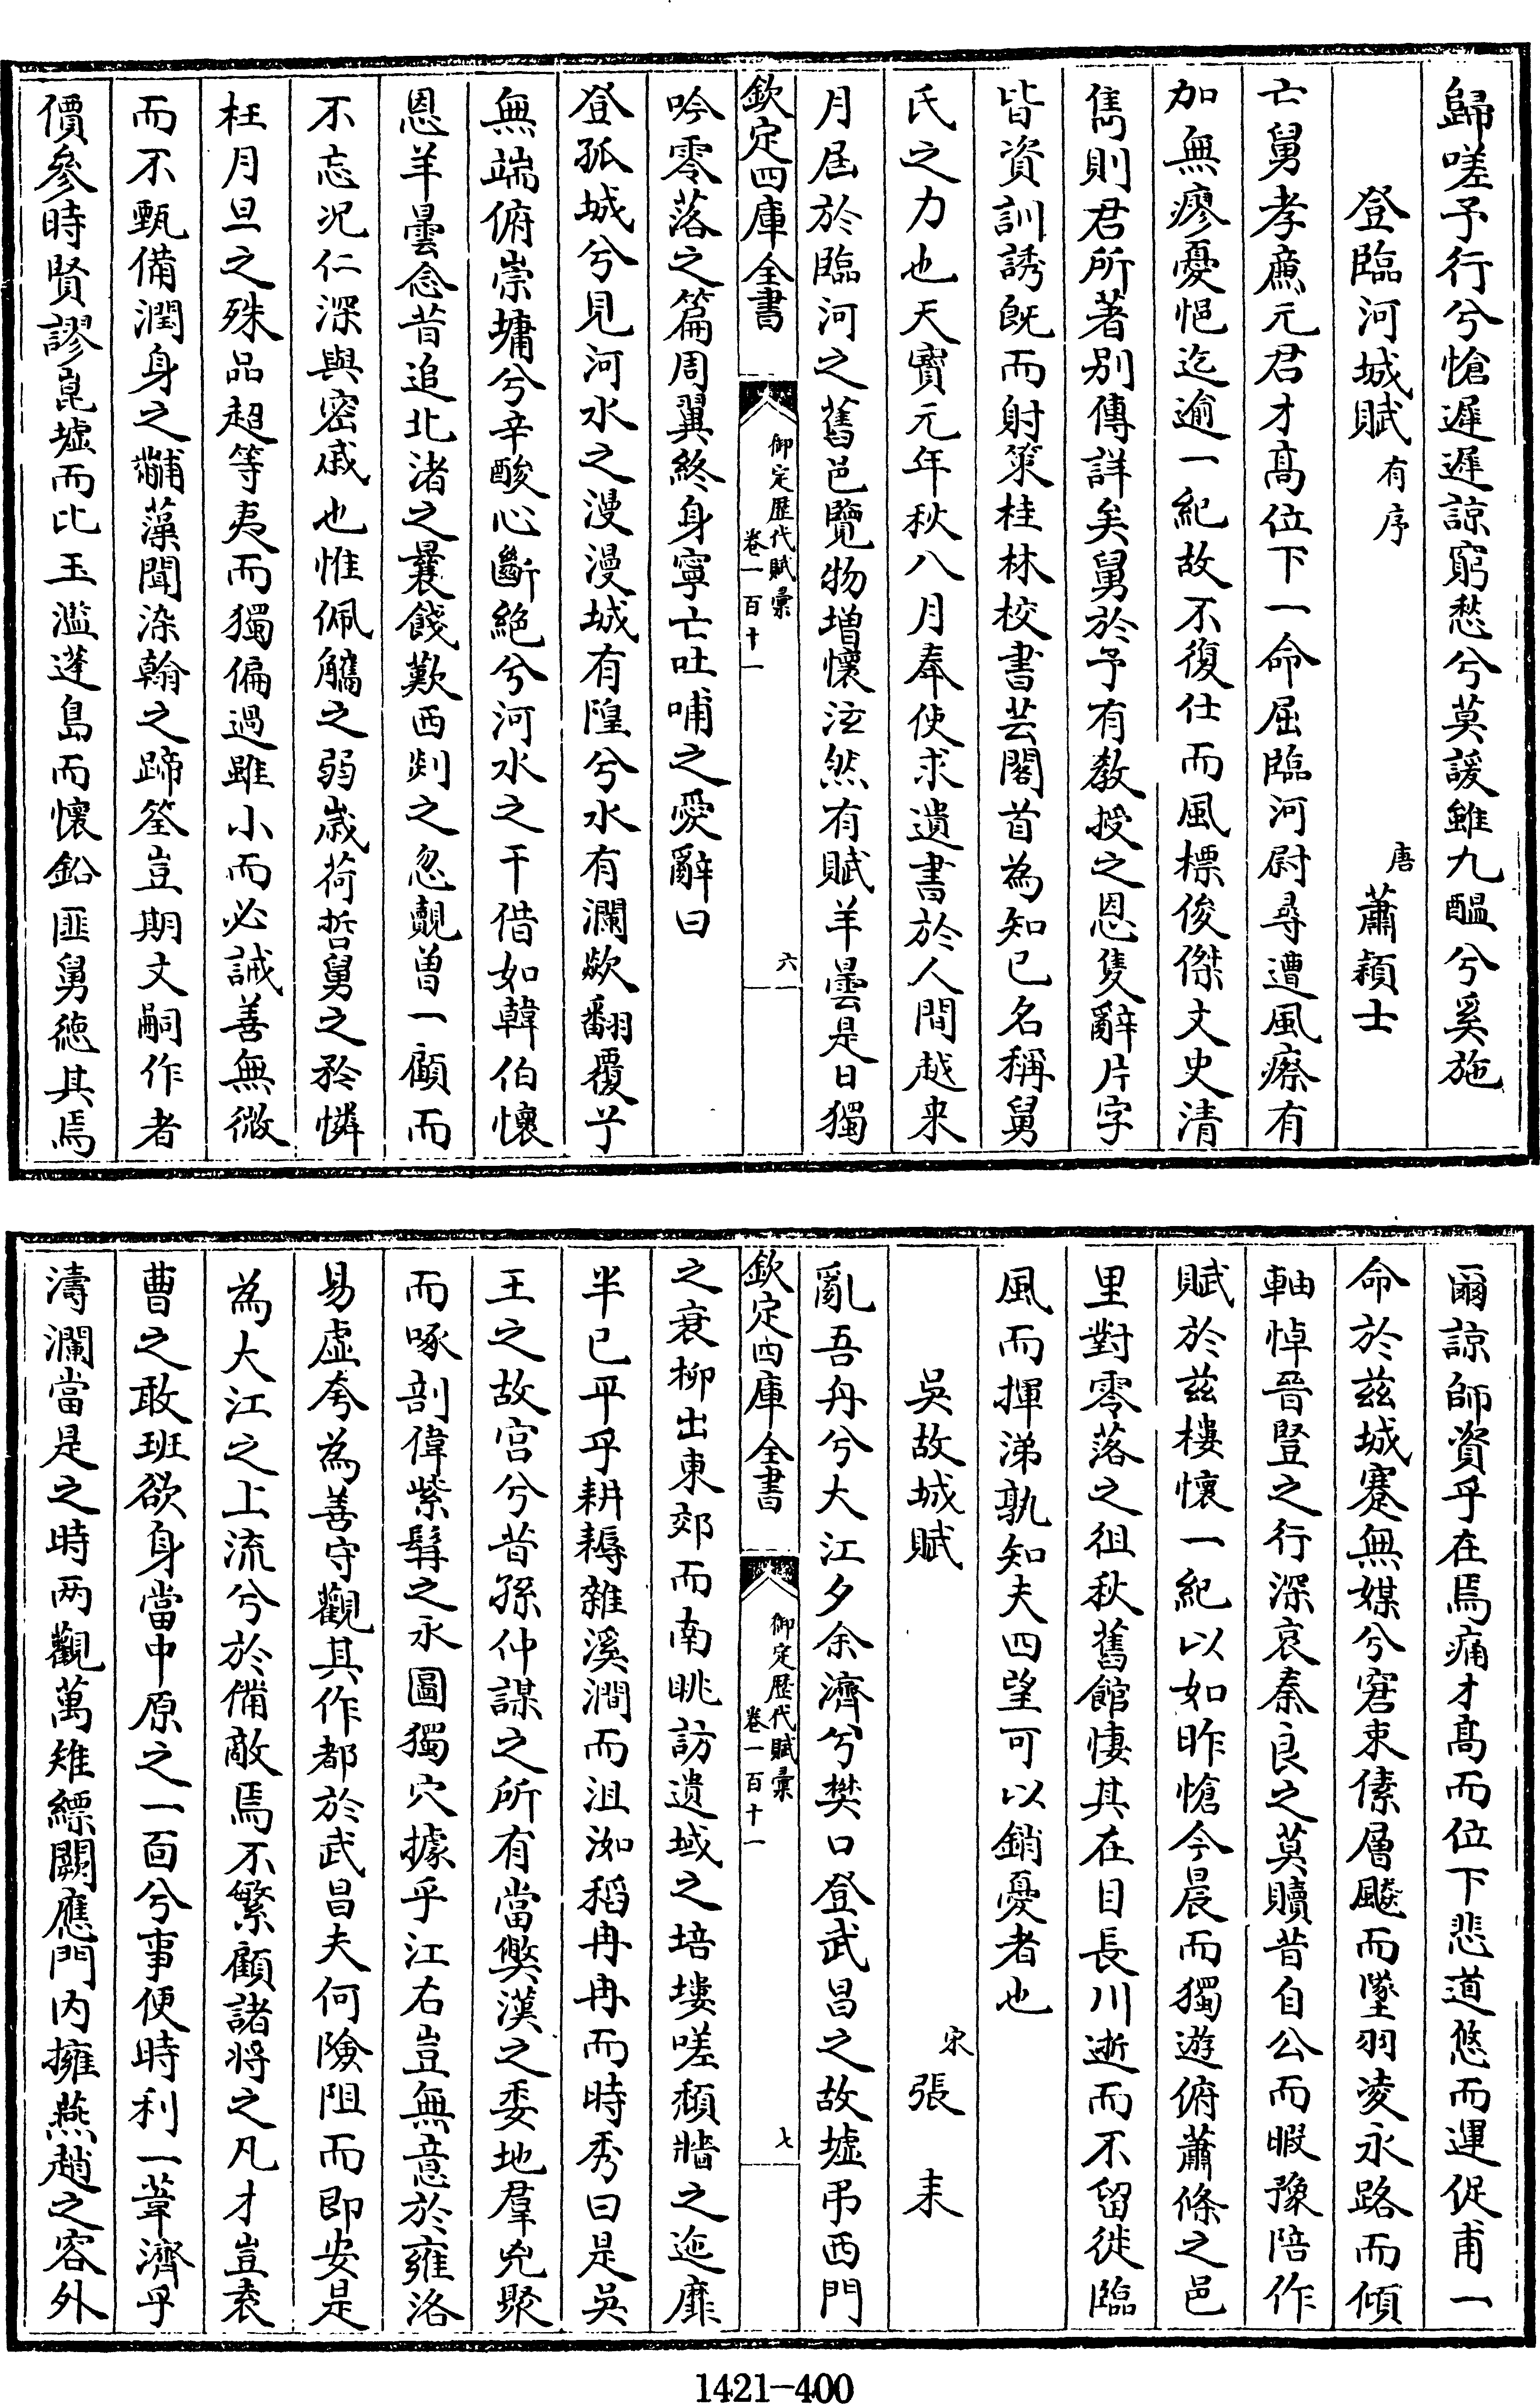 歸嗟予行兮愴遲遲諒窮愁兮莫諼雖九醞兮奚施
登臨河城賦有序 唐蕭穎士
亡舅孝廉元君才高位下一命屈臨河尉尋遭風瘵有
加無瘳憂悒迄逾一紀故不復仕而風標俊傑文史清
雋則君所著别傳詳矣舅於予有教授之恩隻辭片字
皆資訓誘既而射策桂林校書芸閣首為知已名稱舅
氏之力也天寳元年秋八月奉使求遺書於人間越来
月届於臨河之舊邑覽物増懷泫然有賦羊曇是日獨
欽定四庫全書
御定歷代賦彙
卷一百十一
六
吟零落之篇周翼終身寧亡吐哺之愛辭曰
登孤城兮見河水之漫漫城有隍兮水有瀾歘翻覆兮
無端俯崇墉兮辛酸心斷絶兮河水之干借如韓伯懷
恩羊曇念昔追北渚之曩餞歎西剡之忽覿曽一顧而
不忘况仁深與密戚也惟佩觿之弱歳荷哲舅之矜憐
枉月旦之殊品超等夷而獨偏過雖小而必誡善無微
而不甄備潤身之黼藻聞染翰之蹄筌豈期文嗣作者
價參時賢謬崑墟而比玉濫蓬島而懷鉛匪舅徳其焉
爾諒師資乎在焉痛才髙而位下悲道悠而運促甫一
命於兹城蹇無媒兮窘束傃層飈而墜羽凌永路而傾
軸悼晉豎之行深哀秦良之莫贖昔自公而暇豫陪作
賦於兹樓懷一紀以如昨愴今晨而獨遊俯蕭條之邑
里對零落之徂秋舊館悽其在目長川逝而不留徙臨
風而揮涕孰知夫四望可以銷憂者也
吳故城賦 宋張耒
亂吾舟兮大江夕余濟兮樊口登武昌之故墟弔西門
欽定四庫全書
御定歷代賦彙
卷一百十一
七
之衰柳出東郊而南眺訪遺域之培塿嗟頽牆之迤靡
半已平乎耕耨雜溪澗而沮洳稻冉冉而時秀曰是吳
王之故宫兮昔孫仲謀之所有當獘漢之委地羣兇聚
而啄剖偉紫髯之永圖獨穴據乎江右豈無意於雍洛
易虛夸為善守觀其作都於武昌夫何險阻而即安是
為大江之上流兮於備敵焉不繁顧諸將之凡才豈袁
曹之敢班欲身當中原之一面兮事便時利一葦濟乎
濤瀾當是之時两觀萬雉縹闕應門内擁燕趙之容外
1421-400